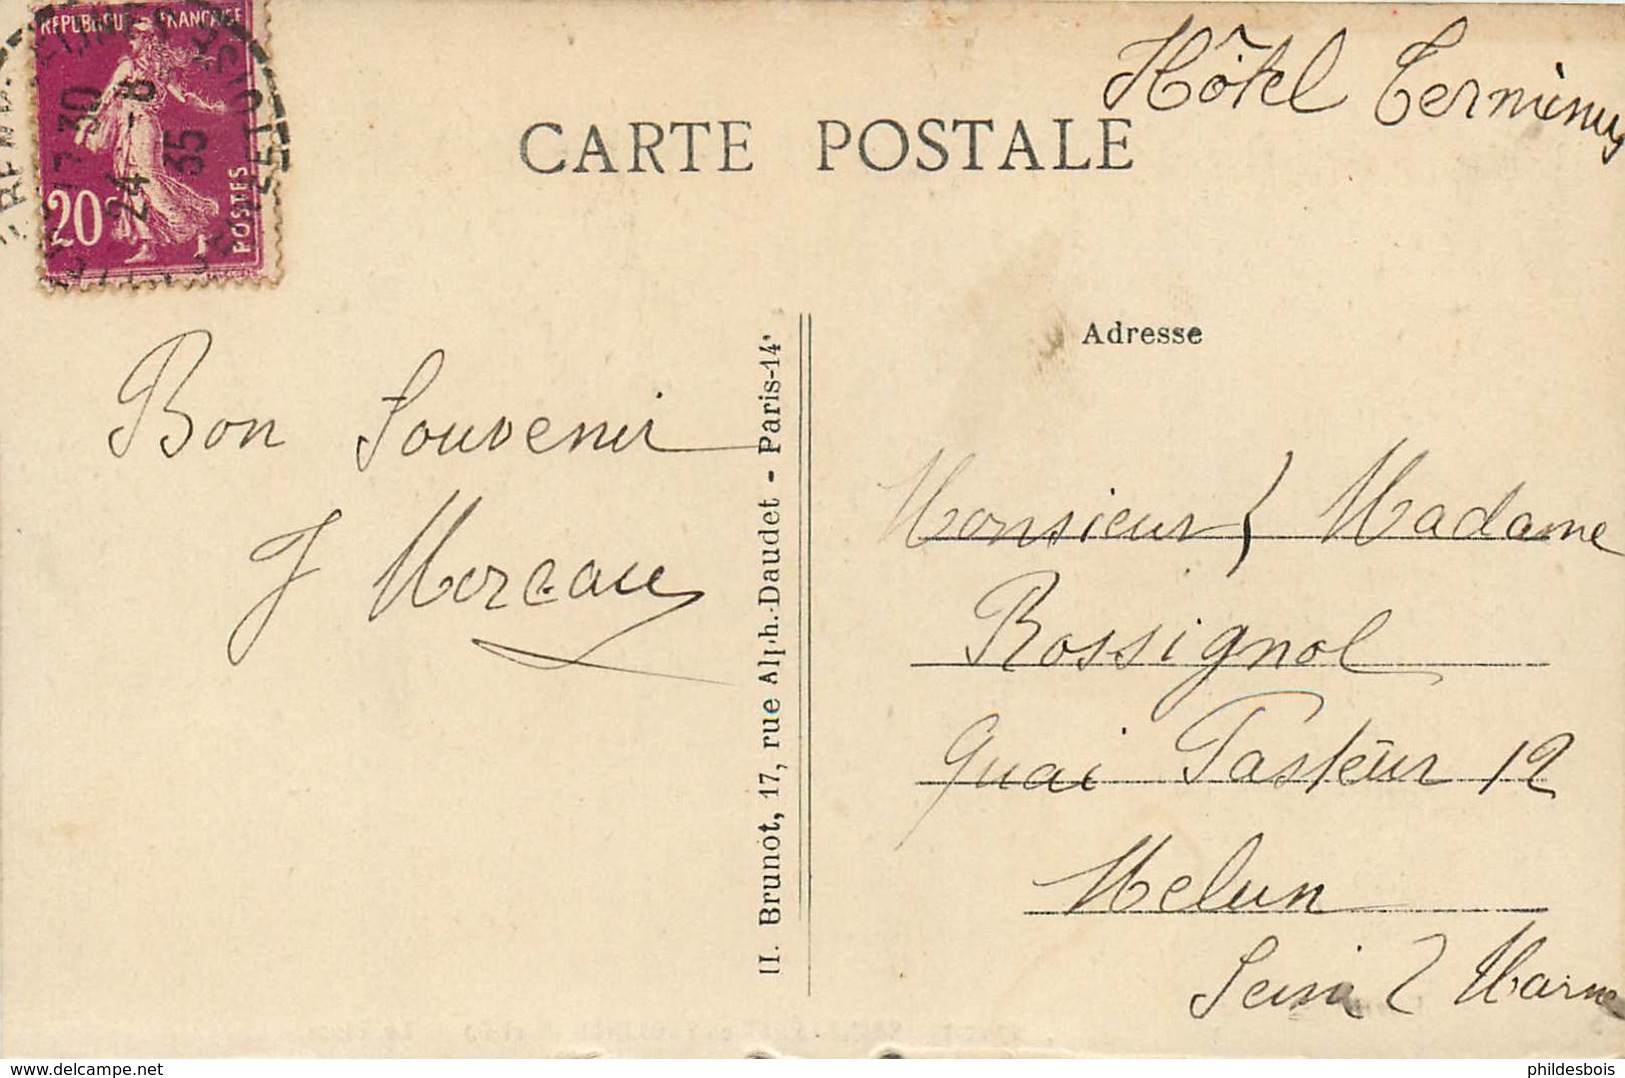 REPUBLIQUE FRANÇAISE
17 30
24 - 8
35
20c
POSTES
CARTE POSTALE
Hôtel Terminus
Adresse
Bon Souvenir
J Moreau
H. Brunot, 17, rue Alph.-Daudet - Paris-14e
Monsieur & Madame
Rossignol
Quai Pasteur 12
Melun
Seine & Marne
phildesbois